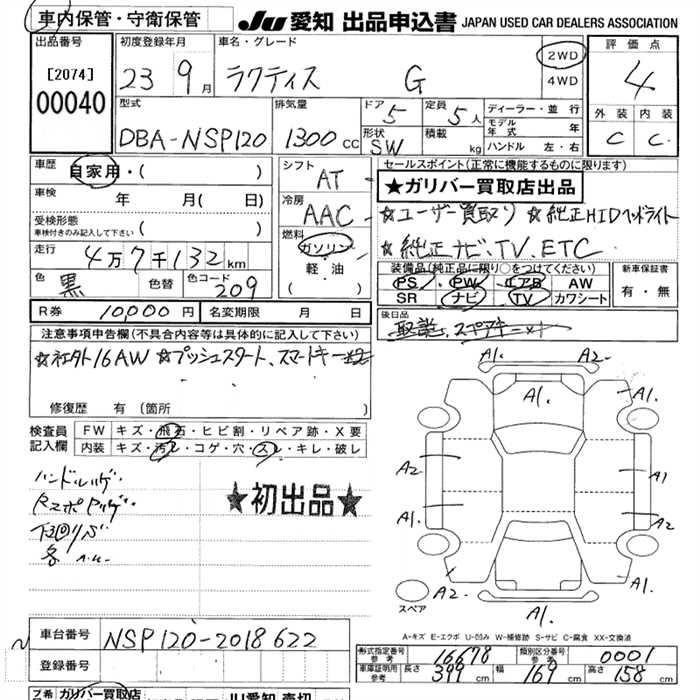 車内保管・守衛保管
JU 愛知 出品申込書 JAPAN USED CAR DEALERS ASSOCIATION
出品番号 [2074] 00040
初度登録年月 23 9月
車名・グレード ラクティス G
2WD
4WD
評価点 4
外装 C 内装 C
型式 DBA-NSP120
排気量 1300cc
ドア 5 定員 5人
形状 SW 積載 kg
ディーラー・並行
モデル年式 年
ハンドル 左・右
車歴 自家用・( )
車検 年 月( 日)
受検形態
車検付きのみ記入して下さい ( )
走行 4万7千132km
色 黒 色替 色コード 209
シフト AT
冷房 AAC
燃料 ガソリン・軽油
( )
セールスポイント(正常に機能するものに限ります)
★ガリバー買取店出品
☆ユーザー買取り ☆純正HIDヘッドライト
☆純正ナビ、TV、ETC
装備品(純正品に限り○をつけて下さい)
PS PW エアB AW
SR ナビ TV カワシート
新車保証書 有・無
R券 10,000円 名変期限 月 日
後日品
取説、スペアキー
注意事項申告欄(不具合内容等は具体的に記入して下さい)
☆社外16AW ☆プッシュスタート、スマートキー
修復歴 有(箇所 )
検査員記入欄
FW キズ・飛石・ヒビ割・リペア跡・X要
内装 キズ・汚レ・コゲ・穴・スレ・キレ・破レ
ハンドルハゲ
下回りサビ
★初出品★
A1. A2
A1. A1.
A2 A1
A1. A2
A2. A1
A1.
スペア
A-キズ E-エクボ U-凹み W-補修跡 S-サビ C-腐食 XX-交換済
車台番号 NSP120-2018622
登録番号
形式指定番号 参考 16678 類別区分番号 参考 0001
車庫証明用 参考 長さ 399cm 幅 169cm 高さ 158cm
ガリバー買取店
JU愛知 売切